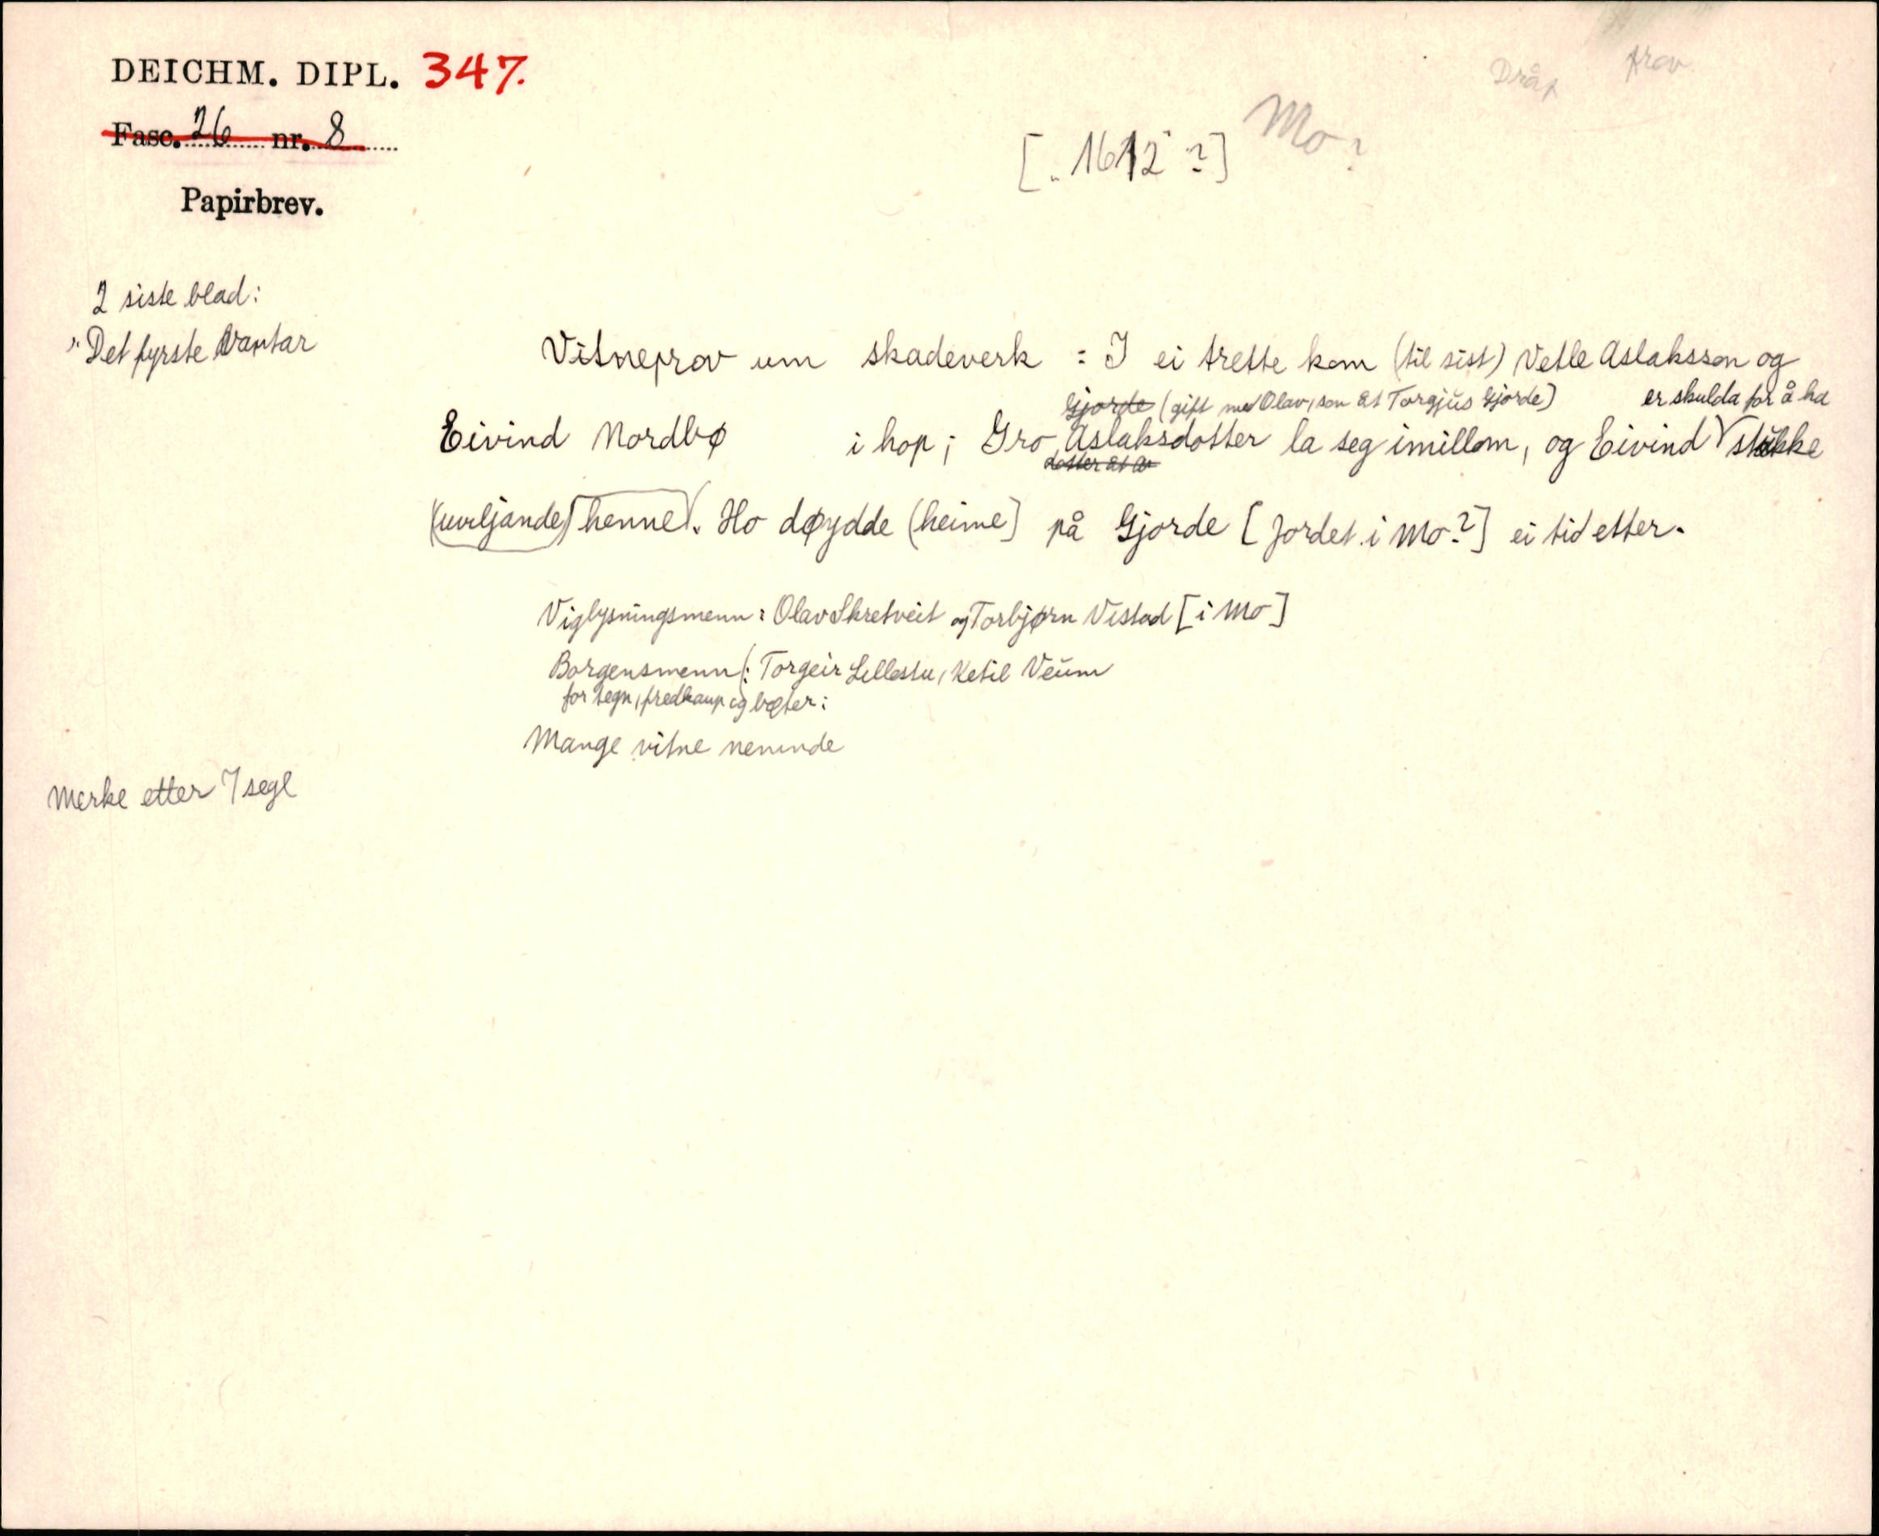 DEICHM. DIPL. 347.
Dråp prov
Fasc. 26 nr. 8
[. 1612 ?] Mo?
Papirbrev.
2 siste blad:
"Det fyrste vantar
Vitneprov um skadeverk : I ei trette kom (til sist) Vetle Aslaksson og
Gjorde (gift med Olav, son åt Torgjus Gjorde) er skulda for å ha
Eivind Nordbø i hop; Gro Aslaksdotter la seg imillom, og Eivind stukke
dotter åt
(uviljande) henne. Ho døydde (heime] på Gjorde [Jordet i Mo?] ei tid etter.
Viglysningsmenn: Olav Skretveit og Torbjørn Vistad [i Mo]
Borgensmenn: Torgeir Lillestu, Ketil Veum
for tegn, fredkaup og bøter:
Mange vitne nemnde
Merke etter 7 segl